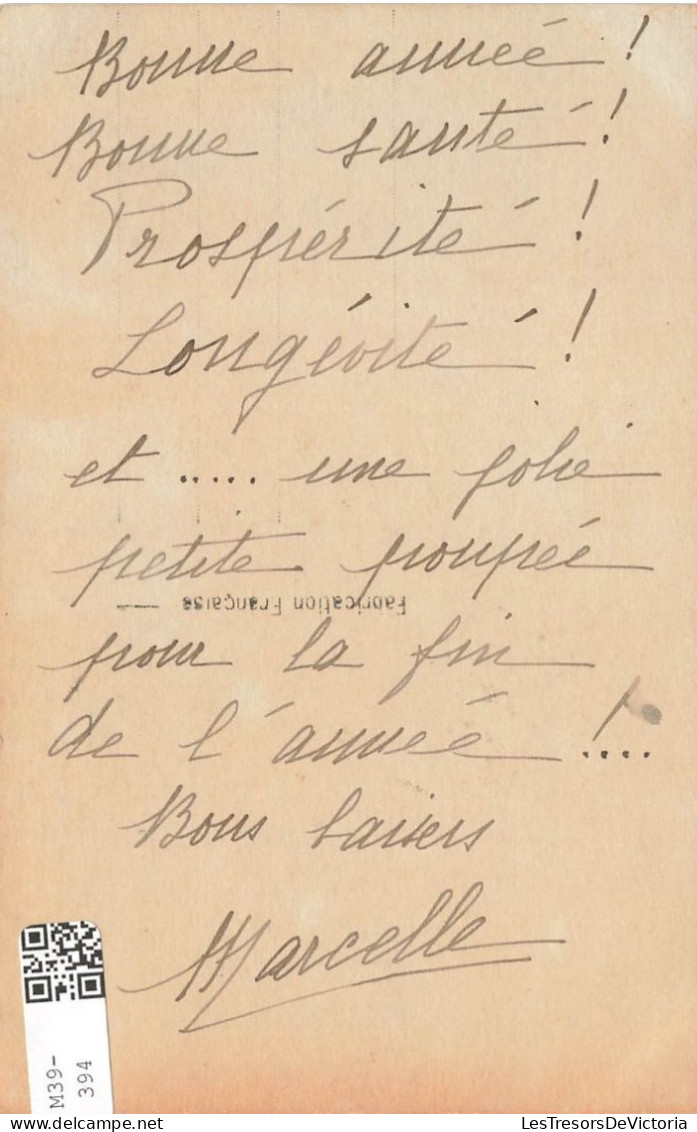 Bonne année !
Bonne santé !
Prospérité !
Longévité !
et ..... une jolie
petite poupée
Fabrication Française
pour la fin
de l'année !....
Bons baisers
Marcelle
M39-
394
LesTresorsDeVictoria